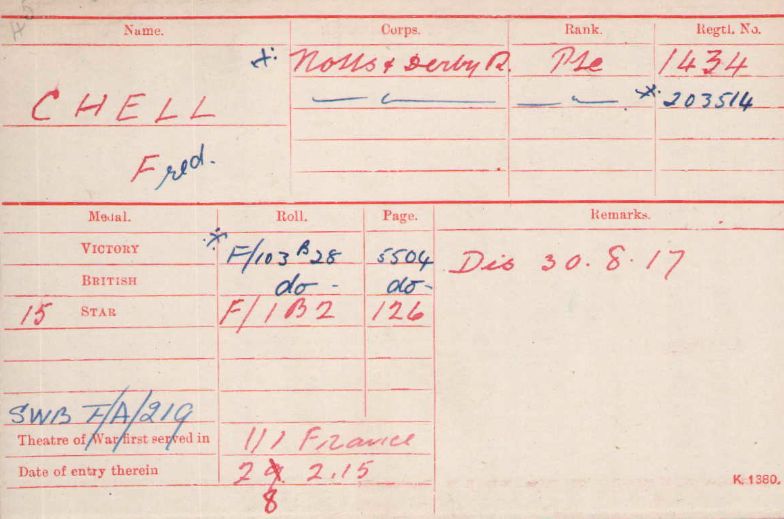 Name. Corps. Rank. Regtl. No.
* Notts & Derby R. Pte 1434
CHELL * 203514
Fred.
Medal. Roll. Page. Remarks.
VICTORY * F/103 B 28 5504
Dis 30.8.17
BRITISH do - do -
15 STAR F/1B2 126
SWB F/A/219
Theatre of War first served in 1/1 France
Date of entry therein 29 2.15
8
K. 1380.